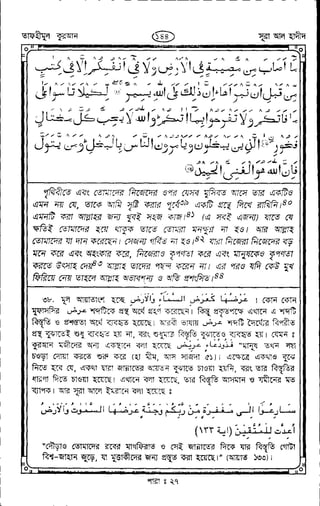 তাফহীমুল কুরআন
১৪৪
সূরা আল হাদীদ
مَا أَصَابَ مِنْ مُّصِيبَةٍ فِي الْأَرْضِ وَلَا فِي أَنْفُسِكُمْ إِلَّا فِي كِتٰبٍ
مِّنْ قَبْلِ أَنْ نَّبْرَأَهَا إِنَّ ذٰلِكَ عَلَى اللهِ يَسِيرٌ لِّكَيْلَا تَأْسَوْا عَلٰى
مَا فَاتَكُمْ وَلَا تَفْرَحُوا بِمَا آتٰكُمْ وَاللهُ لَا يُحِبُّ كُلَّ مُخْتَالٍ
فَخُورٍ الَّذِينَ يَبْخَلُونَ وَيَأْمُرُونَ النَّاسَ بِالْبُخْلِ وَمَنْ يَّتَوَلَّ
فَإِنَّ اللهَ هُوَ الْغَنِيُّ الْحَمِيدُ
পৃথিবীতে এবং তোমাদের নিজেদের ওপর যেসব মুসিবত আসে তার একটিও
এমন নয় যে, তাকে আমি সৃষ্টি করার পূর্বে একটি গ্রন্থে লিখে রাখিনি।৪০
এমনটি করা আল্লাহর জন্য খুবই সহজ কাজ।৪১ (এ সবই এজন্য) যাতে যে
ক্ষতিই তোমাদের হয়ে থাকুক তাতে তোমরা মনক্ষুণ্ন না হও। আর আল্লাহ
তোমাদের যা দান করেছেন। সেজন্য গর্বিত না হও।৪২ যারা নিজেরা নিজেদের বড়
মনে করে এবং অহংকার করে, নিজেরাও কৃপণতা করে এবং মানুষকেও কৃপণতা
করতে উৎসাহ দেয় আল্লাহ তাদের পছন্দ করেন না। এর পরও যদি কেউ মুখ
ফিরিয়ে নেয় তাহলে আল্লাহ অভাবশূন্য ও অতি প্রশংসিত।
৩৮. মূল আয়াতাংশে হচ্ছে عَرْضُهَا كَعَرْضِ السَّمَاءِ وَالْأَرْضِ। কোন কোন
মুফাসসির عرض শব্দটিকে প্রস্থ অর্থে গ্রহণ করেছেন। কিন্তু প্রকৃতপক্ষে এখানে এ শব্দটি
বিস্তৃতি ও প্রশস্ততা অর্থে ব্যবহৃত হয়েছে। আরবী ভাষায় عرض শব্দটি দৈর্ঘ্যের বিপরীত
প্রস্থ বুঝাতেই শুধু ব্যবহৃত হয় না, বরং শুধুমাত্র বিস্তৃতি বুঝাতেও ব্যবহৃত হয়। যেমন:
কুরআন মজীদের অন্য একস্থানে বলা হয়েছে: فَذُو دُعَاءٍ عَرِيضٍ "মানুষ তখন লম্বা
চওড়া দোয়া করতে শুরু করে (হা মীম, আস সাজদা ৫১)।
سَارِعُوا إِلٰى مَغْفِرَةٍ مِّنْ رَّبِّكُمْ وَجَنَّةٍ عَرْضُهَا السَّمٰوٰتُ وَالْأَرْضُ
أُعِدَّتْ لِلْمُتَّقِينَ (اية ١٣٣)
"দৌড়াও তোমাদের রবের মাগফিরাত ও সেই জান্নাতের দিকে যার বিস্তৃতি গোটা
বিশ্ব-জাহান জুড়ে, যা মুত্তাকীদের জন্য প্রস্তুত করা হয়েছে।" (আয়াত ১৩৩)।
পারা : ২৭